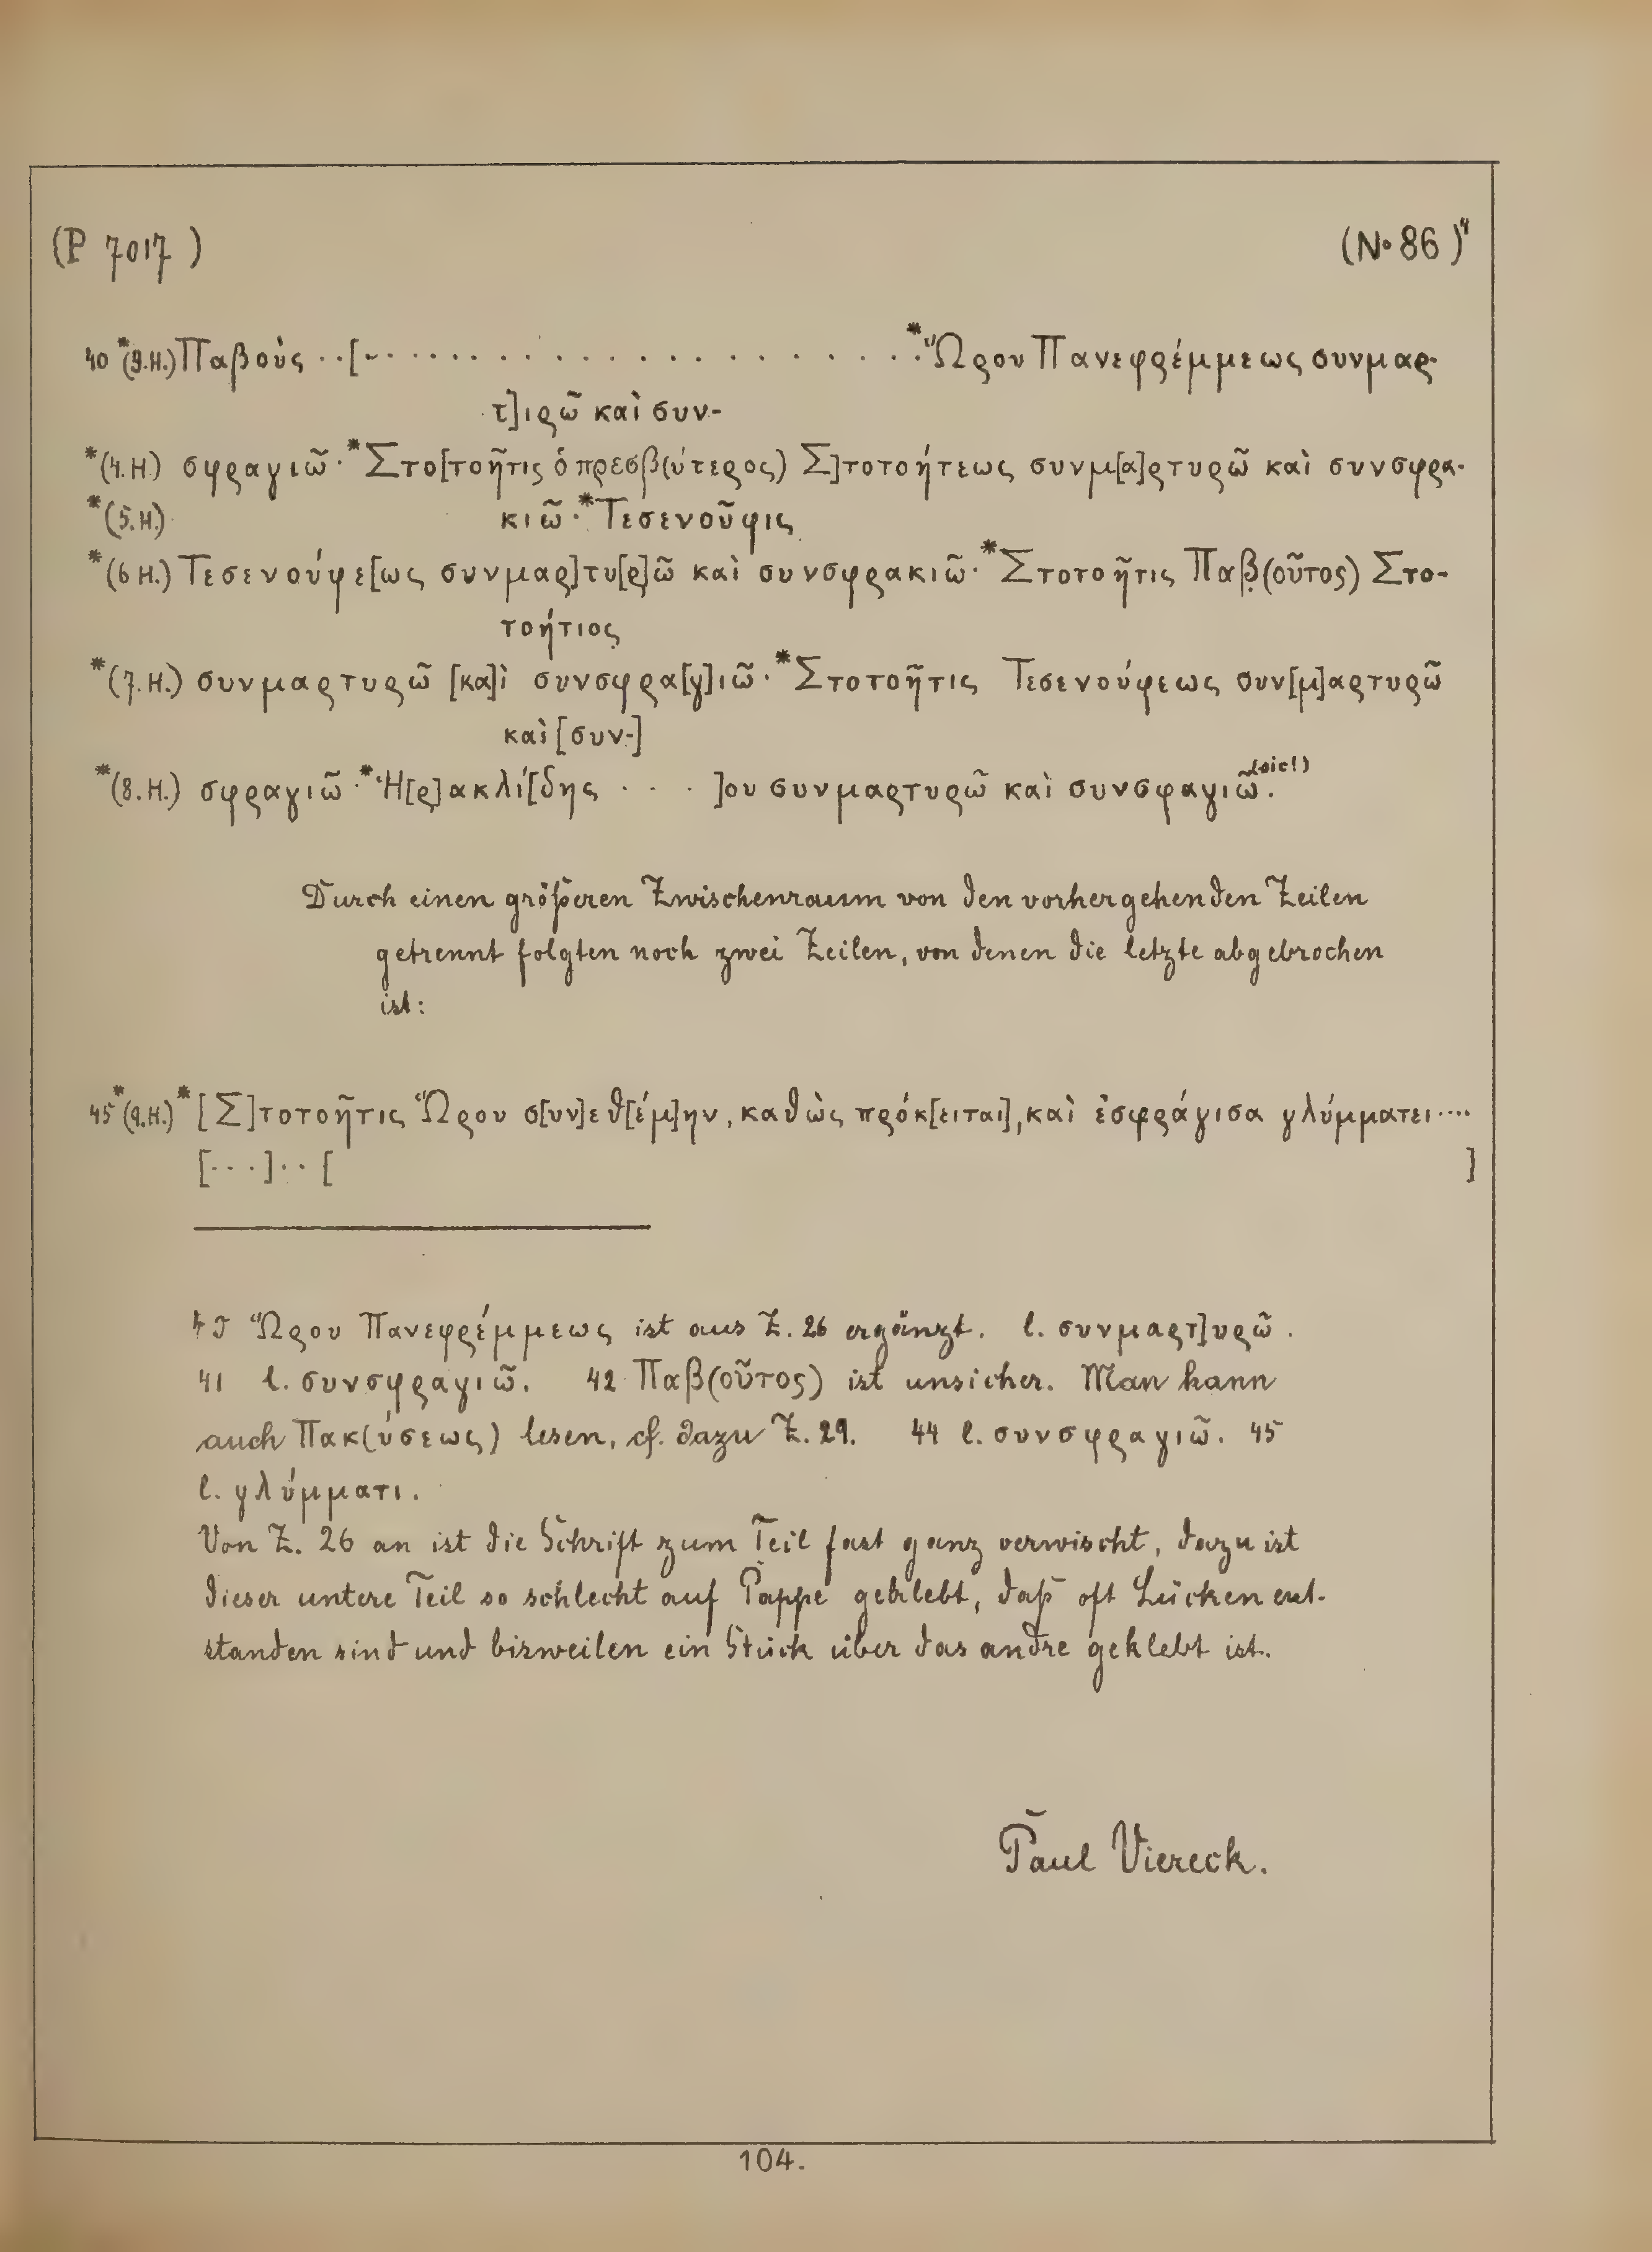 (P 7017)
(No 86)4
40 *(3.H.) Παβοὺς ··[····················· *Ὥρου Πανεφρέμμεως συνμαρ-
τ]ιρῶ καὶ συν-
*(4.H.) σφραγιῶ· *Στο[τοῆτις ὁ πρεσβ(ύτερος) Σ]τοτοήτεως συνμ[α]ρτυρῶ καὶ συνσφρα-
*(5.H.) κιῶ· *Τεσενοῦφις
*(6 H.) Τεσενούφε[ως συνμαρ]τυ[ρ]ῶ καὶ συνσφρακιῶ· *Στοτοῆτις Παβ̣(οῦτος) Στο-
τοήτιος
*(7.H.) συνμαρτυρῶ [κα]ὶ συνσφρα[γ]ιῶ· *Στοτοῆτις Τεσενούφεως συν[μ]αρτυρῶ
καὶ [συν-]
*(8.H.) σφραγιῶ· *Ἡ[ρ]ακλί[δης · · · ]ου συνμαρτυρῶ καὶ συνσφαγιῶ (sic!).
Durch einen größeren Zwischenraum von den vorhergehenden Zeilen
getrennt folgten noch zwei Zeilen, von denen die letzte abgebrochen
ist:
45 *(9.H.) *[Σ]τοτοῆτις Ὥρου σ[υν]εθ[έμ]ην, καθὼς πρόκ[ειται], καὶ ἐσφράγισα γλύμματει ····
[····]·· [ ]
40 Ὥρου Πανεφρέμμεως ist aus Z. 26 ergänzt. l. συνμαρτ]υρῶ.
41 l. συνσφραγιῶ. 42 Παβ(οῦτος) ist unsicher. Man kann
auch Πακ(ύσεως) lesen, cf. dazu Z. 29. 44 l. συνσφραγιῶ. 45
l. γλύμματι.
Von Z. 26 an ist die Schrift zum Teil fast ganz verwischt, dazu ist
dieser untere Teil so schlecht auf Pappe geklebt, daß oft Lücken ent-
standen sind und bisweilen ein Stück über das andre geklebt ist.
Paul Viereck.
104.